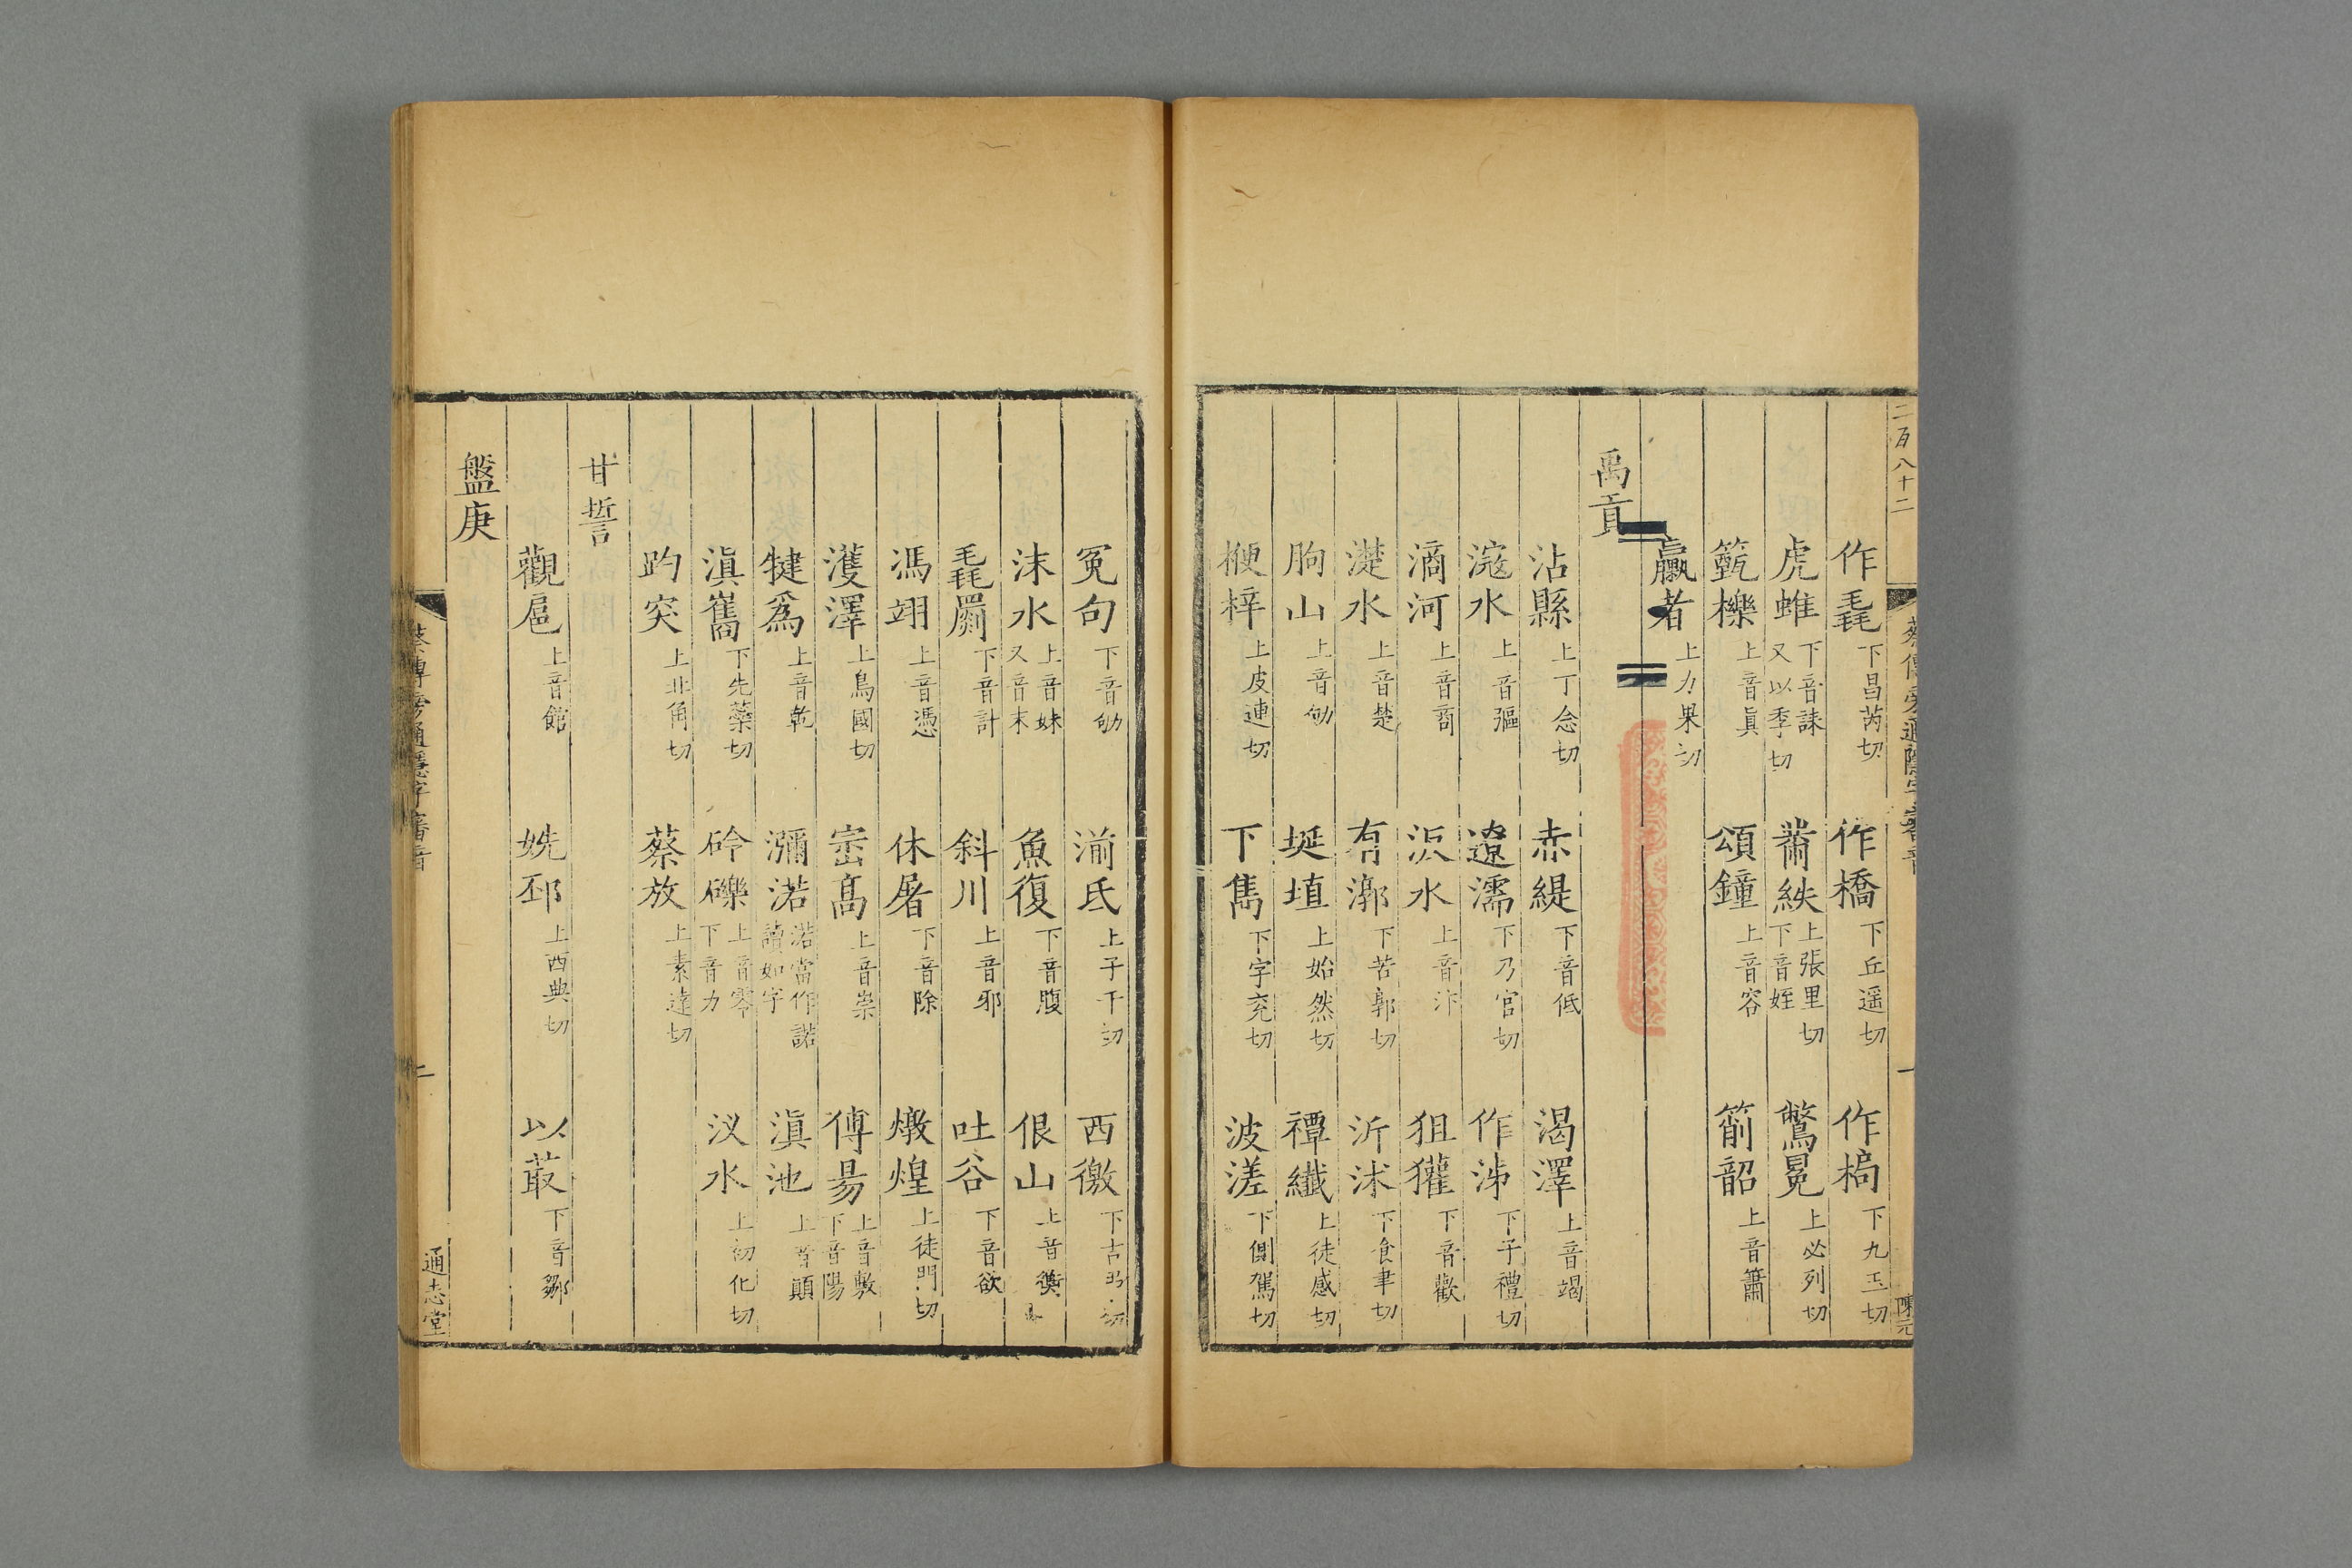 二百八十二
蔡傳旁通隱字審音
一
陳元
作毳下昌芮切 作橋下丘遥切 作梮下九玉切
虎蜼下音誄又以季切 黹紩上張里切下音姪 鷩冕上必列切
甄櫟上音真 頌鐘上音容 箾韶上音簫
臝者上力果切
禹貢
沾縣上丁念切 赤緹下音低 渴澤上音竭
滱水上音彄 遼濡下乃官切 作泲下子禮切
滳河上音商 汳水上音汴 狙獾下音歡
濋水上音楚 有漷下苦郭切 沂沭下食聿切
朐山上音劬 埏埴上始然切 禫纖上徒感切
楩梓上皮連切 下雋下字兗切 波溠下側駕切
冤句下音劬 湔氐上子千切 西徼下吉弔切
沬水上音妹又音末 魚復下音腹 佷山上音衡
毳罽下音計 斜川上音邪 吐谷下音欲
馮翊上音憑 休屠下音除 燉煌上徒門切
濩澤上烏國切 崈高上音崇 傅昜上音敷下音陽
犍爲上音乾 瀰渃渃當作諾讀如字 滇池上音顛
滇嶲下先蘂切 砱礫上音零下音力 汊水上初化切
趵突上北角切 蔡放上素達切
甘誓
觀扈上音館 姺邳上西典切 以菆下音鄒
盤庚
蔡傳旁通隱字審音
二
通志堂